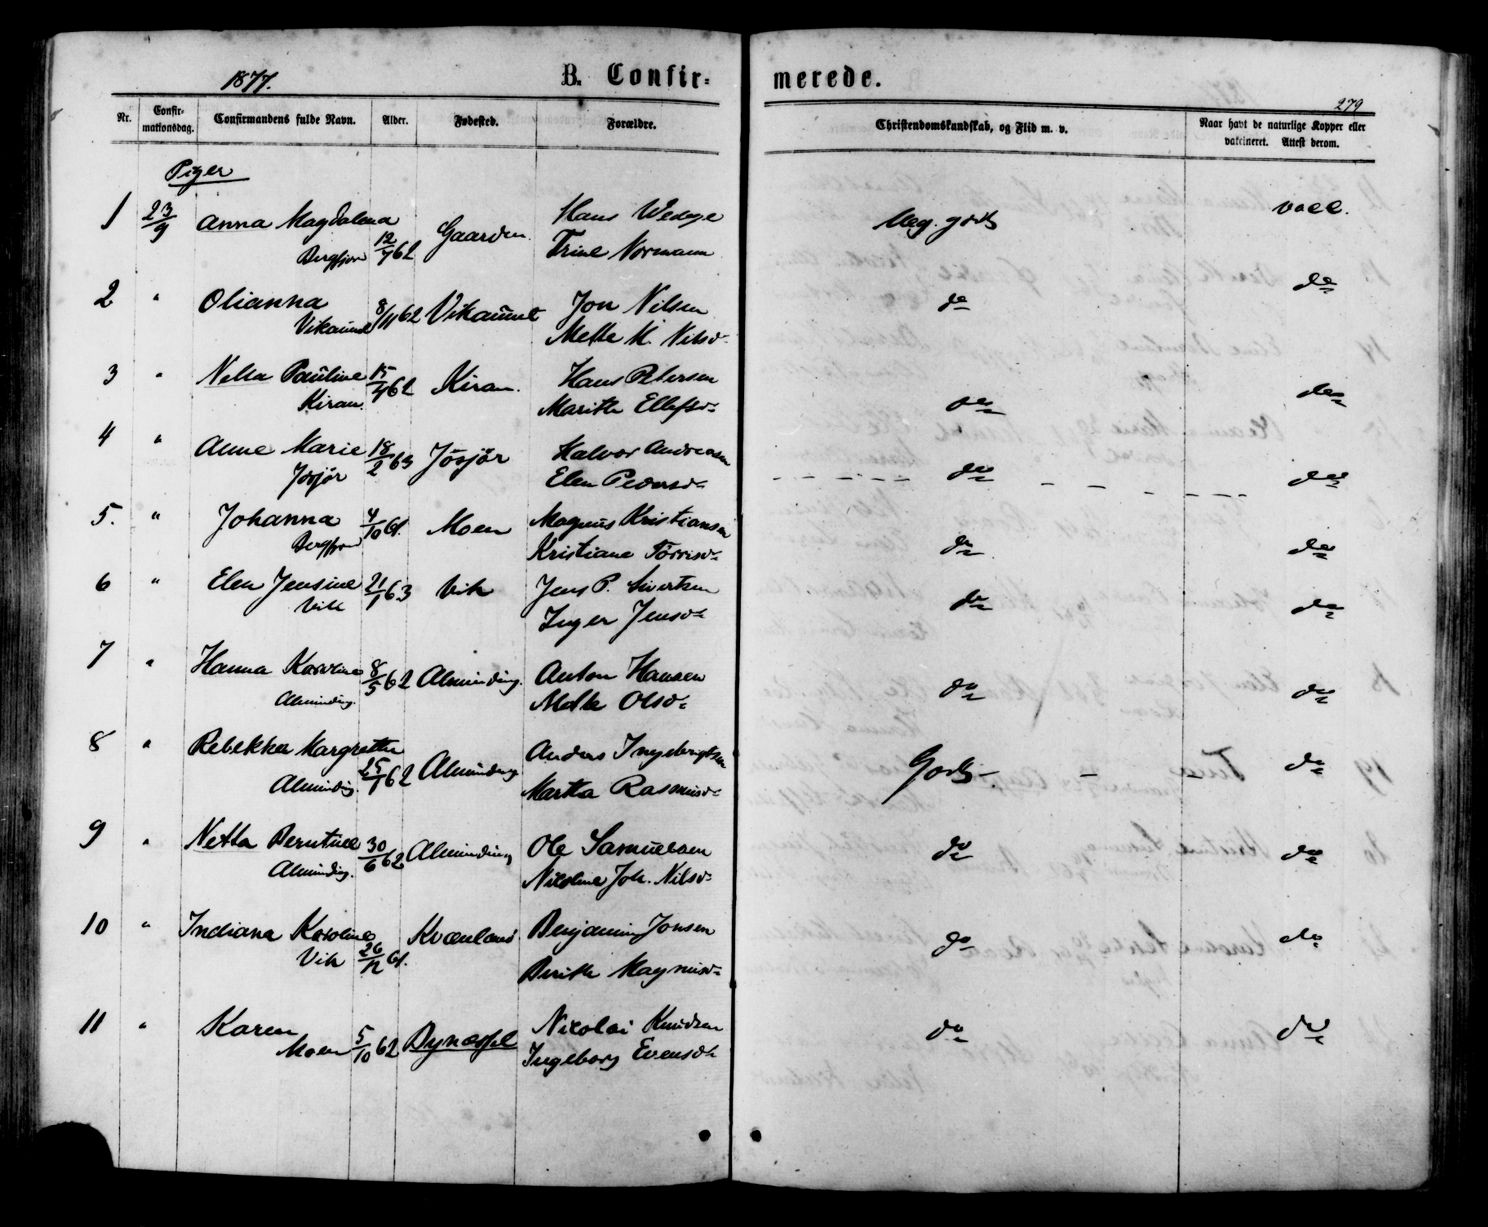 1877. B. Confir-merede.
279
Nr. Confirmationsdag. Confirmandens fulde Navn. Alder. Fødested. Forældre. Christendomskundskab, og Flid m. v. Naar havt de naturlige Kopper eller vakcineret. Attest derom.
Piger
1 23/9 Anna Magdalena Gaarden Hans Wedege Meg. godt vacc.
Bergfjor 12/7 62 Trine Normann
2 " Olianna 8/11 62 Vikaunet Jon Nilsen do do
Vikaunet Mette M. Nilsd.
3 " Netta Pauline 15/7 62 Kiran Hans Petersen do do
Kiran Marith Ellefsd.
4 " Anne Marie 18/2 63 Jøsjør Halvor Andreasen do do
Jøsjør Elen Pedersd.
5. " Johanna 4/10 61. Moen Magnus Kristiansen do do
Bergfjor Kristiane Torrisd.
6 " Elen Jensine 21/1 63 Vik Jens P. Sivertsen do do
Vik Inger Jensd.
7 " Hanna Karoline 8/5 62 Alminding. Anton Hansen do do
Alminding. Mette Olsd.
8 " Rebekka Margrethe Alminding Anders Ingebrigtsen Godt - - do
Alminding 25/1 62 Martha Rasmusd.
9 " Netta Berntine 30/6 62 Alminding Ole Samuelsen do do
Alminding. Nikoline Joh. Nilsd.
10 " Indiana Karoline Kvænland Benjamin Jonsen do do
Vik 26/12 61. Berith Magnusd.
11 " Karen 5/10 62 Bynæsset Nikolai Knudsen do do
Moen Ingeborg Evensd.